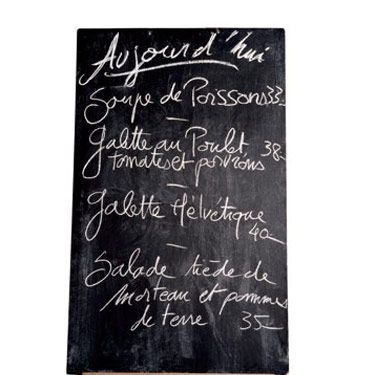 Aujourd'hui
Soupe de Poissons 33.-
—
Galette au Poulet 38.-
tomates et poivrons
—
Galette Helvétique
40.-
—
Salade tiède de
morteau et pommes
de terre 35.-